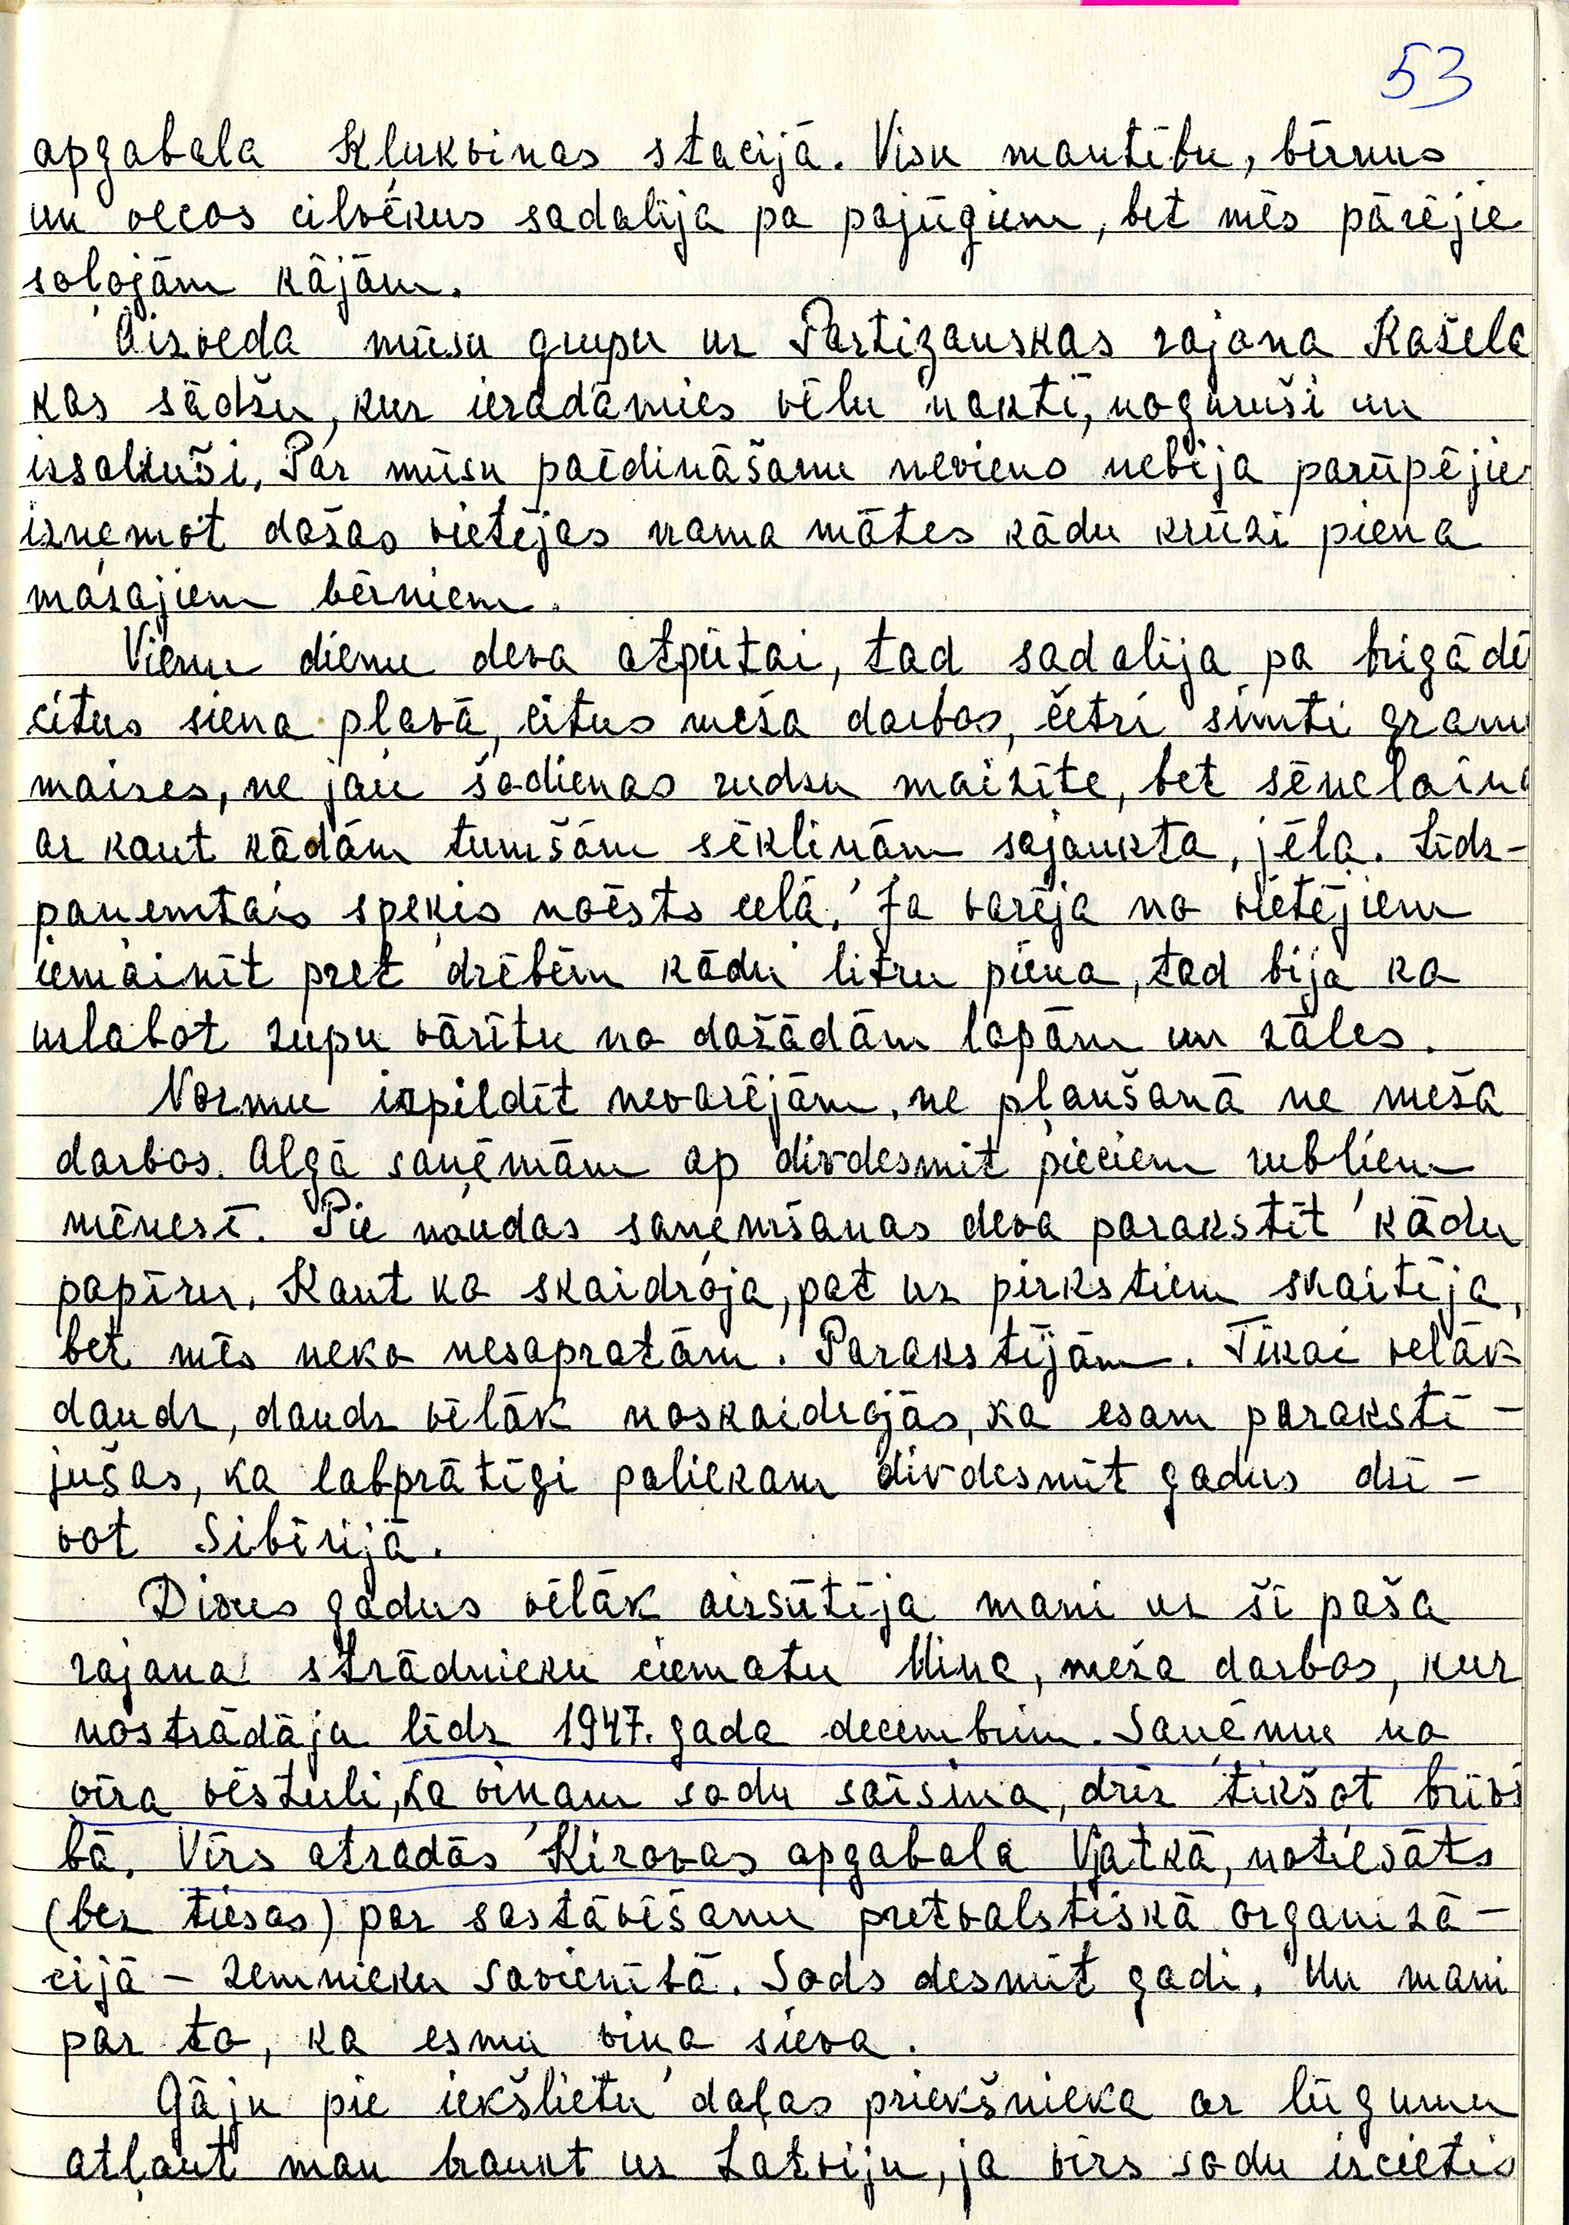 53
apgabala Klukvinas stacijā. Visu mantību, bērnus
un vecos cilvēkus sadalīja pa pajūgiem, bet mēs pārējie
soļojām kājām.
Aizveda mūsu grupu uz Partizanskas rajona Kašele
kas sādžu, kur ieradāmies vēlu naktī, noguruši un
issalkuši. Par mūsu paēdināšanu neviens nebija parūpējie
izņemot dažas vietējas nama mātes kādu krūzi piena
mazajiem bērniem.
Vienu dienu deva atpūtai, tad sadalīja pa brigādē
citus siena pļavā, citus meža darbos, četri simti gram
maizes, ne jau šodienas rudzu maizīte, bet sēnelaina
ar kaut kādām tumšām sēkliņām sajaukta, jēla. Līdz-
paņemtais speķis noēsts ceļā. Ja varēja no vietējiem
iemainīt pret drēbēm kādu litru piena, tad bija ko
uzlabot zupu vārītu no dažādām lapām un zāles.
Normu izpildīt nevarējām, ne pļaušanā ne meža
darbos. Algā saņēmām ap divdesmit pieciem rubļiem
mēnesī. Pie naudas saņemšanas deva parakstīt kādu
papīru. Kaut ko skaidroja, pat uz pirkstiem skaitīja,
bet mēs neko nesapratām. Parakstījām. Tikai vēlāk
daudz, daudz vēlāk noskaidrojās, ka esam parakstī-
jušas, ka labprātīgi paliekam divdesmit gadus dzī-
vot Sibīrijā.
Divus gadus vēlāk aizsūtīja mani uz šī paša
rajona strādnieku ciematu Mina, meža darbos, kur
nostrādāju līdz 1947. gada decembrim. Saņēmu no
vīra vēstuli, ka viņam sodu saīsina, drīz tikšot brīvī
bā. Vīrs atradās Kirovas apgabala Vjatkā, notiesāts
(bez tiesas) par sastāvēšanu pretvalstiskā organizā-
cijā – zemnieku savienībā. Sods desmit gadi. Un mani
par to, ka esmu viņa sieva.
Gāju pie iekšlietu daļas priekšnieka ar lūgumu
atļaut man braukt uz Latviju, ja vīrs sodu izcietis